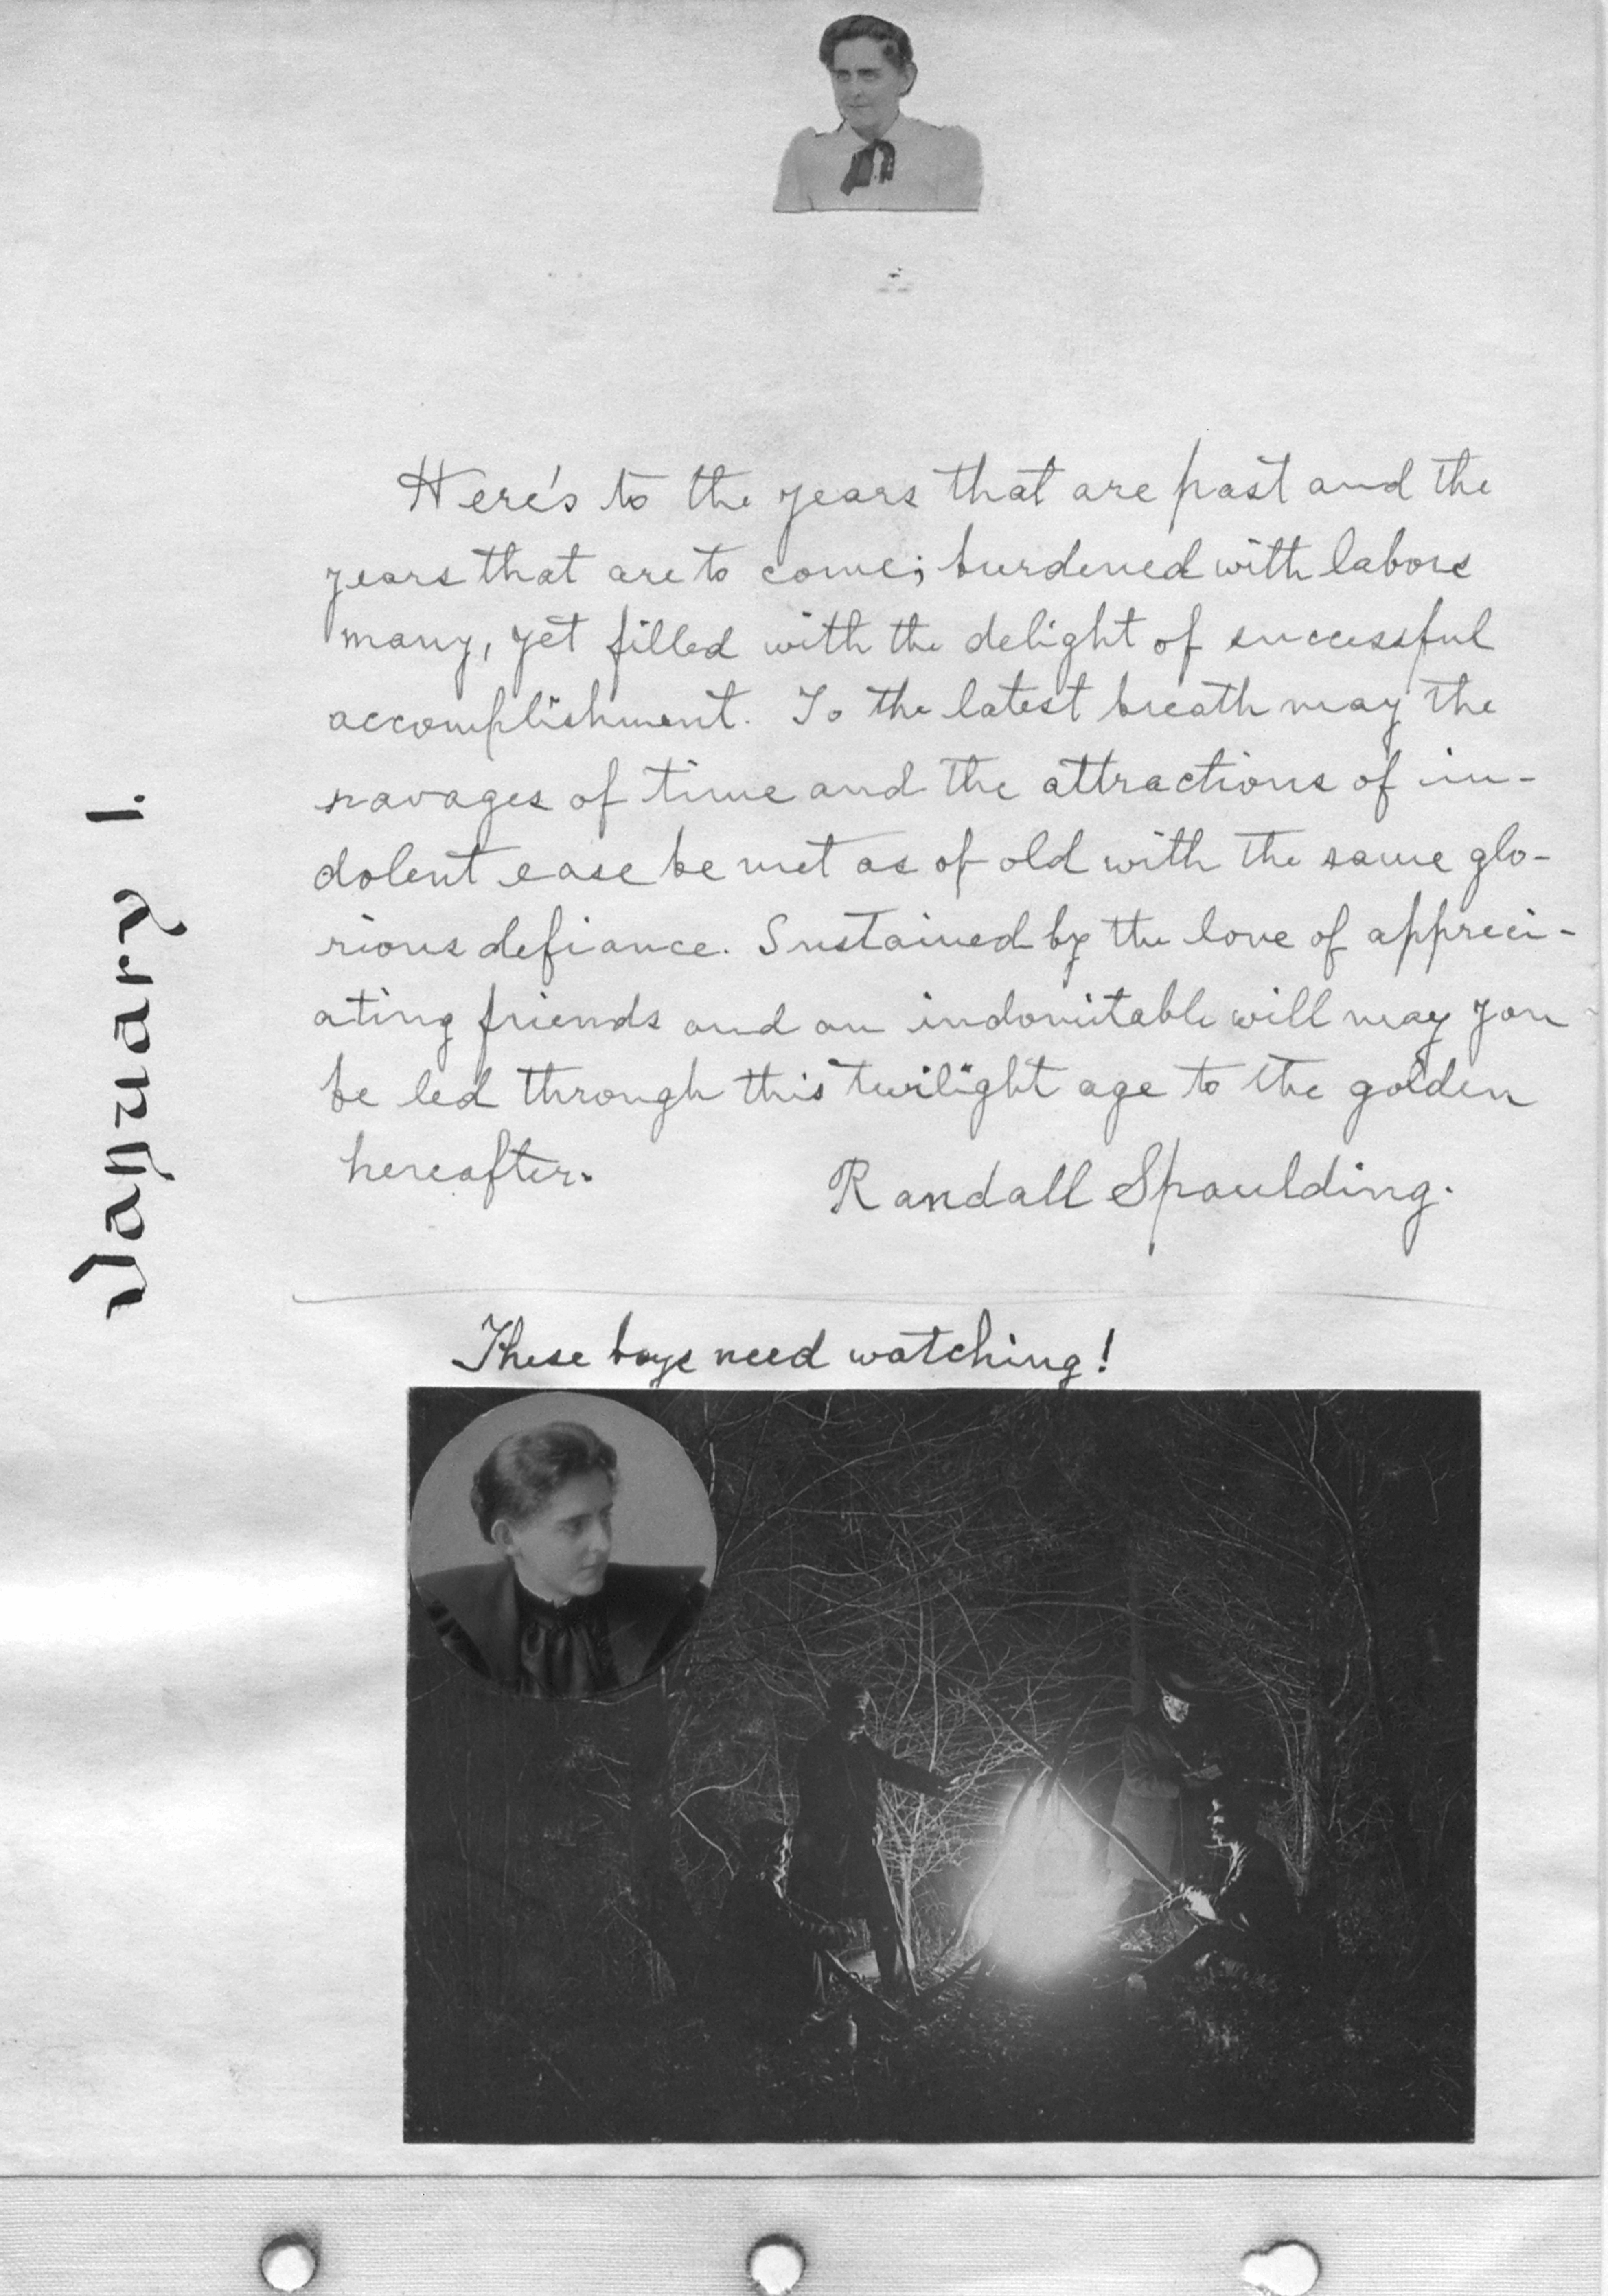 January 1.
Here's to the years that are past and the
years that are to come; burdened with labors
many, yet filled with the delight of successful
accomplishment. To the latest breath may the
ravages of time and the attractions of in-
dolent ease be met as of old with the same glo-
rious defiance. Sustained by the love of appreci-
ating friends and an indomitable will may you
be led through this twilight age to the golden
hereafter.
Randall Spaulding.
These boys need watching!